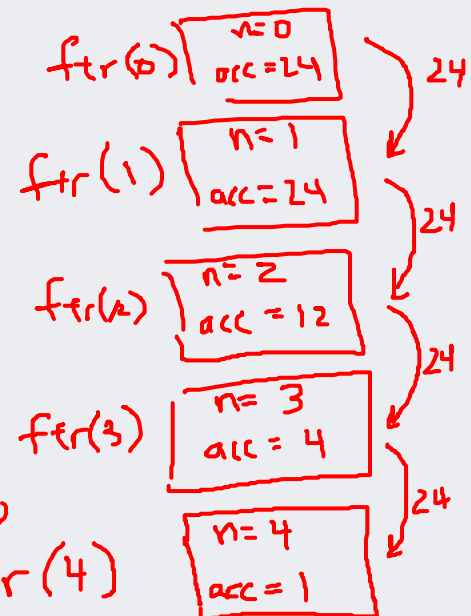 ftr(0) n=0
acc=24
24
ftr(1) n=1
acc=24
24
ftr(2) n=2
acc=12
24
ftr(3) n=3
acc=4
24
r(4) n=4
acc=1